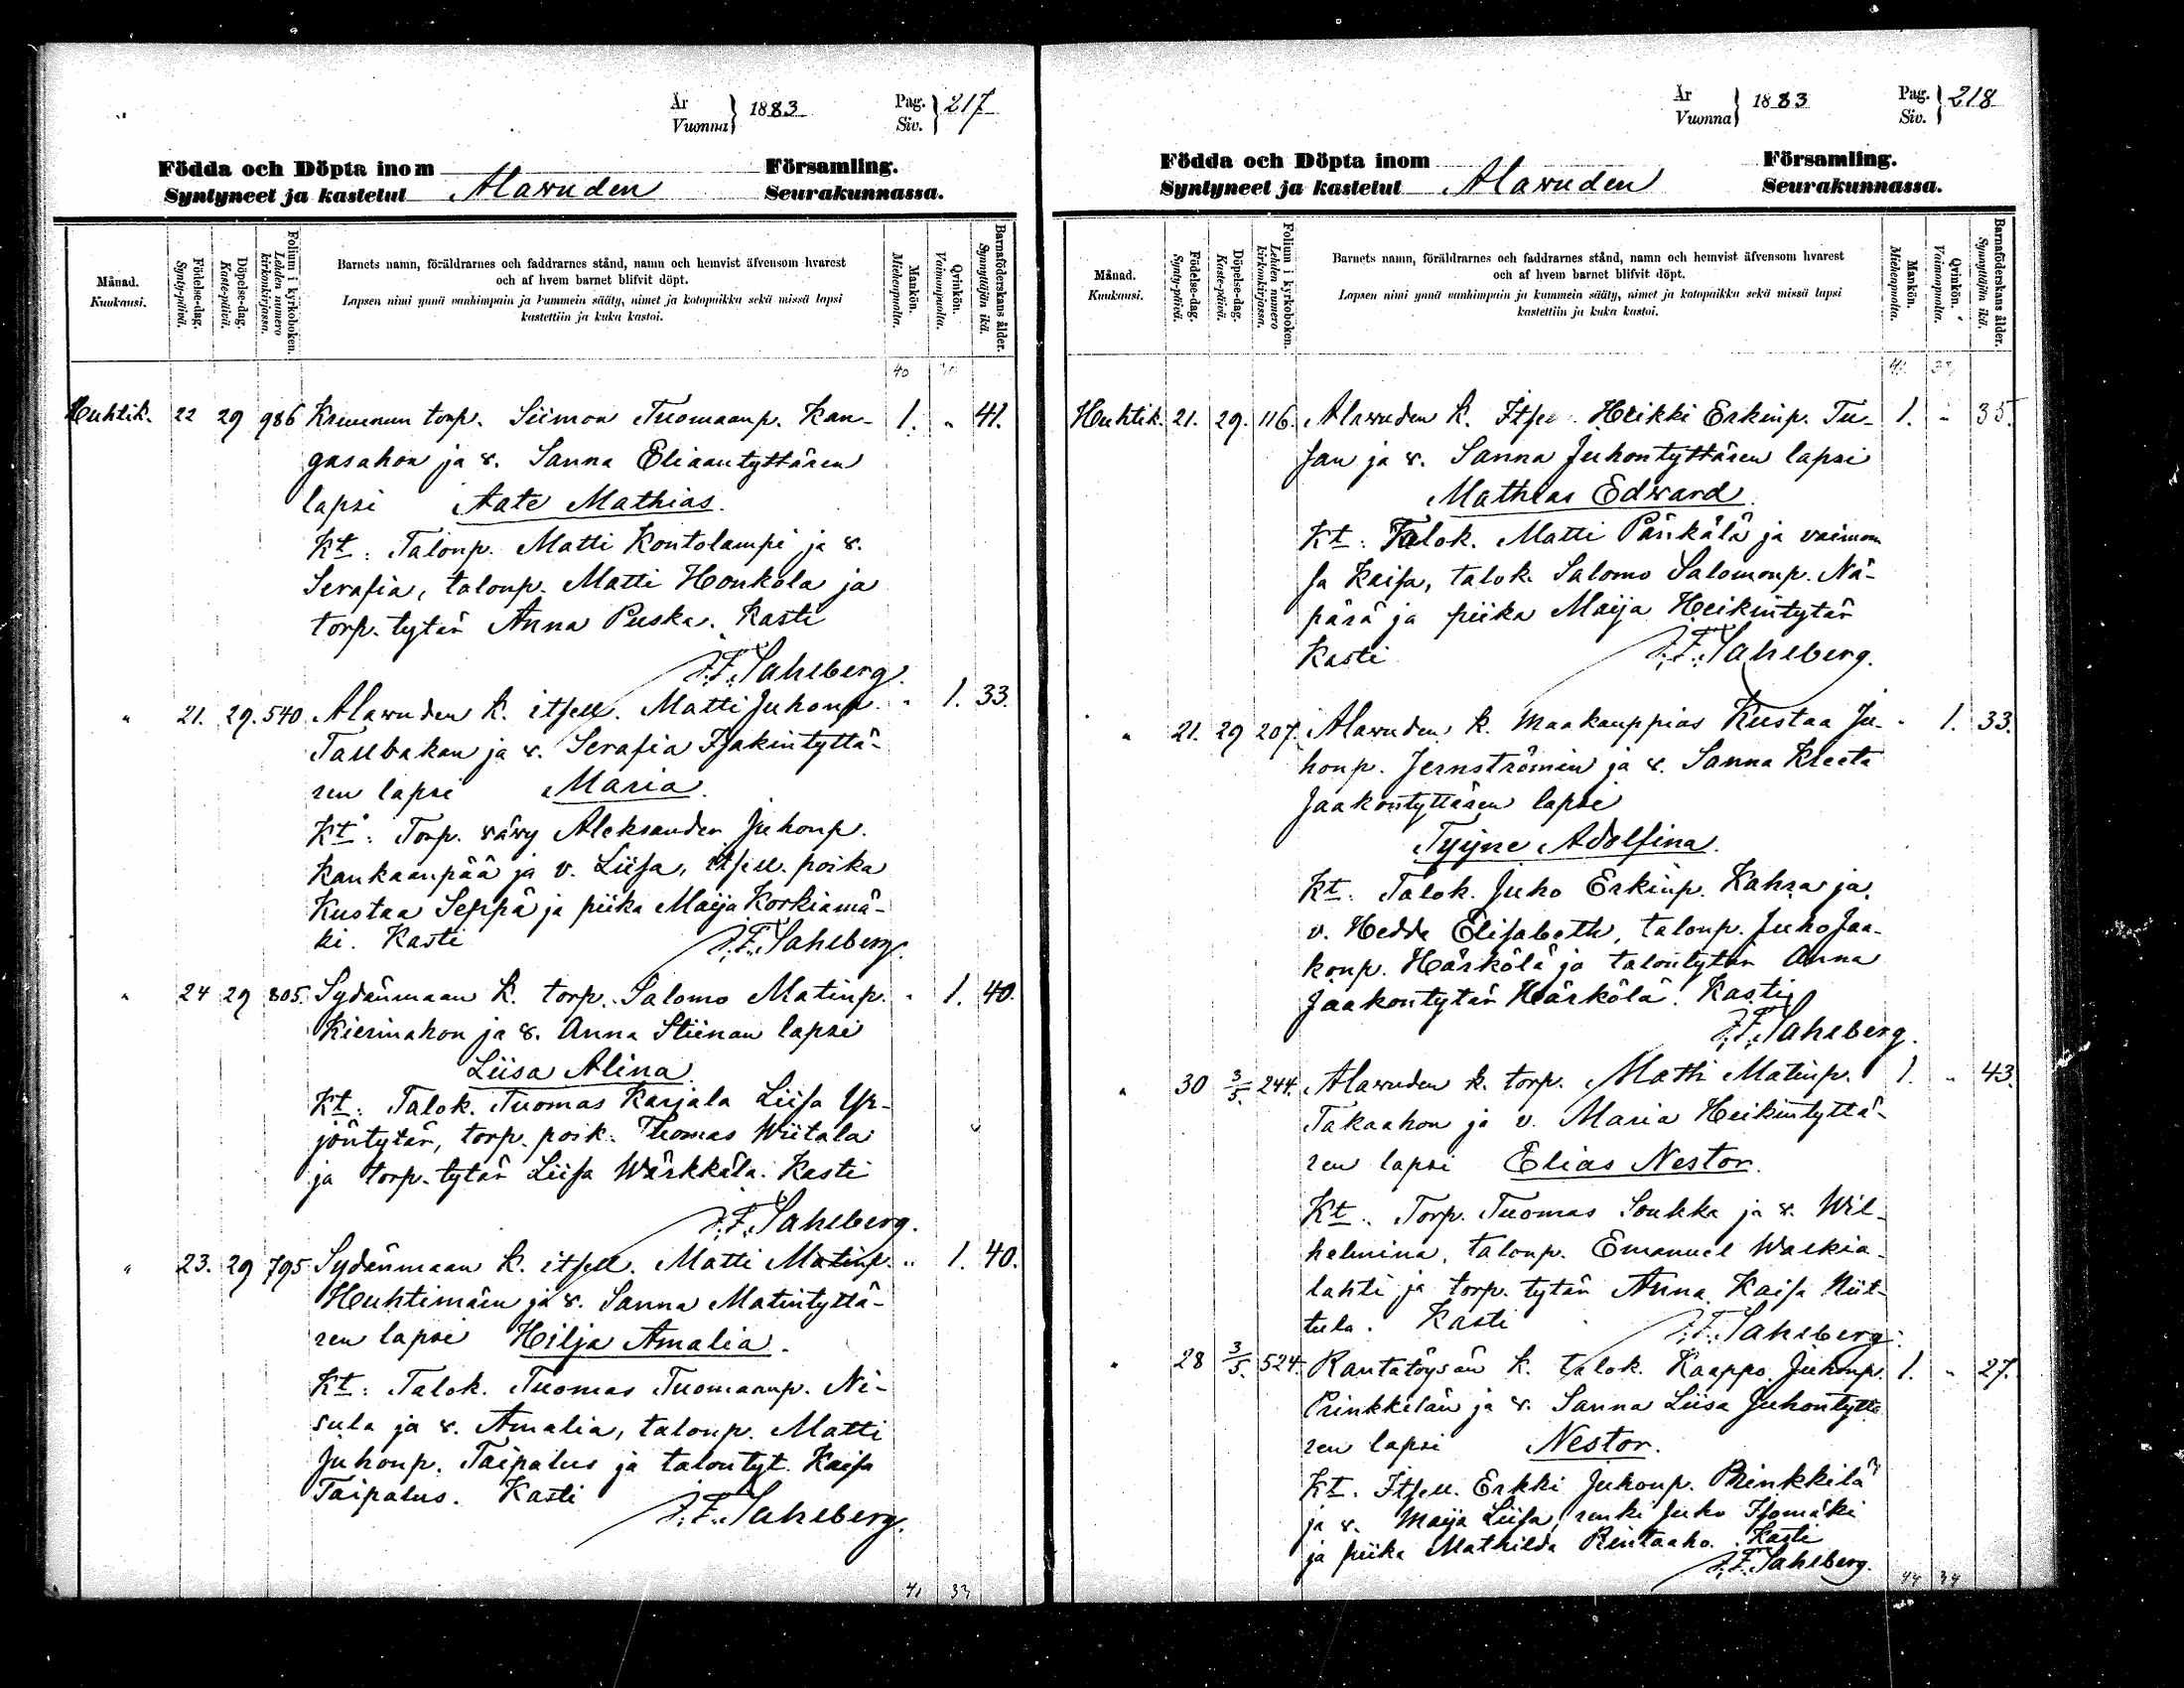 År
Vuonna } 1883
Pag.
Siv. } 217
Födda och Döpta inom Församling.
Syntyneet ja kastetut Alavuden Seurakunnassa.
Månad.
Kuukausi.
Födelse-dag.
Synty-päivä.
Döpelse-dag.
Kaste-päivä.
Folium i kyrkoboken.
Lehden numero kirkonkirjassa.
Barnets namn, föräldrarnes och faddrarnes stånd, namn och hemvist äfvensom hvarest
och af hvem barnet blifvit döpt.
Lapsen nimi ynnä vanhimpain ja kummein sääty, nimet ja kotopaikka sekä missä lapsi
kastettiin ja kuka kastoi.
Mankön.
Miehenpuolta.
Qvinkön.
Vaimonpuolta.
Barnaföderskans ålder.
Synnyttäjän ikä.
40
Huhtik. 22 29 986 Kruunun torp. Siimon Tuomaanp. Kan- 1. " 41.
gasahon ja v. Sanna Eliaantyttären
lapsi Aate Mathias.
Kt: Talonp. Matti Kontolampi ja v.
Serafia, talonp. Matti Honkola ja
torp. tytär Anna Puska. Kasti
J. F. Sahlberg.
" 21. 29. 540 Alavuden k. itsell. Matti Juhonp. " 1. 33.
Taubakan ja v. Serafia Isakintyttä-
ren lapsi Maria.
Kt: Torp. vävy Aleksander Juhonp.
Kankaanpää ja v. Liisa, itsell. poika
Kustaa Seppä ja piika Maija Korkiamä-
ki. Kasti J. F. Sahlberg.
" 24 29 805. Sydänmaan k. torp. Salomo Matinp. " 1. 40.
Kierinahon ja v. Anna Stiinan lapsi
Liisa Alina
Kt: Talok. Tuomas Karjala Liisa Yr-
jöntytär, torp. poik. Thomas Wiitala
ja torp. tytär Liisa Wärkkälä. Kasti
J. F. Sahlberg.
" 23. 29 795 Sydänmaan k. itsell. Matti Matinp. " 1. 40.
Huhtimäen ja v. Sanna Matintyttä-
ren lapsi Hilja Amalia.
Kt: Talok. Tuomas Tuomaanp. Ni-
sula ja v. Amalia, talonp. Matti
Juhonp. Taipalus ja talontyt. Kaisa
Taipalus. Kasti
J. F. Sahlberg.
41 33
År
Vuonna } 1883
Pag.
Siv. } 218
Födda och Döpta inom Församling.
Syntyneet ja kastetut Alavuden Seurakunnassa.
Månad.
Kuukausi.
Födelse-dag.
Synty-päivä.
Döpelse-dag.
Kaste-päivä.
Folium i kyrkoboken.
Lehden numero kirkonkirjassa.
Barnets namn, föräldrarnes och faddrarnes stånd, namn och hemvist äfvensom hvarest
och af hvem barnet blifvit döpt.
Lapsen nimi ynnä vanhimpain ja kummein sääty, nimet ja kotopaikka sekä missä lapsi
kastettiin ja kuka kastoi.
Mankön.
Miehenpuolta.
Qvinkön.
Vaimonpuolta.
Barnaföderskans ålder.
Synnyttäjän ikä.
41 33
Huhtik. 21. 29. 116. Alavuden k. Itse Heikki Erkinp. Tu- 1. " 35.
san ja v. Sanna Juhontyttären lapsi
Mathias Edvard.
Kt: Talok. Matti Pänkälä ja vaimon
sa Kaisa, talok. Salomo Salomonp. Nä-
pärä ja piika Maija Heikintytär
Kasti J. F. Sahlberg.
" 21. 29 207. Alavuden k. Maakauppias Kustaa Ju- " 1. 33.
honp. Jernströmin ja v. Sanna Kreeta
Jaakontyttären lapsi
Tyyne Adolfina.
Kt: Talok. Juho Erkinp. Kahra ja
v. Hedda Elisabeth, talonp. Juho Jaa-
konp. Härkölä ja talontytär Anna
Jaakontytär Härkölä. Kasti
J. F. Sahlberg.
" 30 3/5. 244. Alavuden k. torp. Matti Matinp. 1. " 43.
Takaahon ja v. Maria Heikintyttä-
ren lapsi Elias Nestor.
Kt: Torp. Tuomas Soukka ja v. Wil-
helmina, talonp. Emanuel Walkia-
lahti ja torp. tytär Anna Kaisa Niit-
tula. Kasti J. F. Sahlberg.
" 28 3/5. 524. Rantatöysän k. talok. Kaappo Juhonp. 1. " 27.
Prinkkilän ja v. Sanna Liisa Juhontyttä
ren lapsi Nestor.
Kt. Itsell. Erkki Juhonp. Prinkkilä
ja v. Maija Liisa, renki Juho Isomäki
ja piika Mathilda Rintaaho. Kasti
J. F. Sahlberg.
44 34